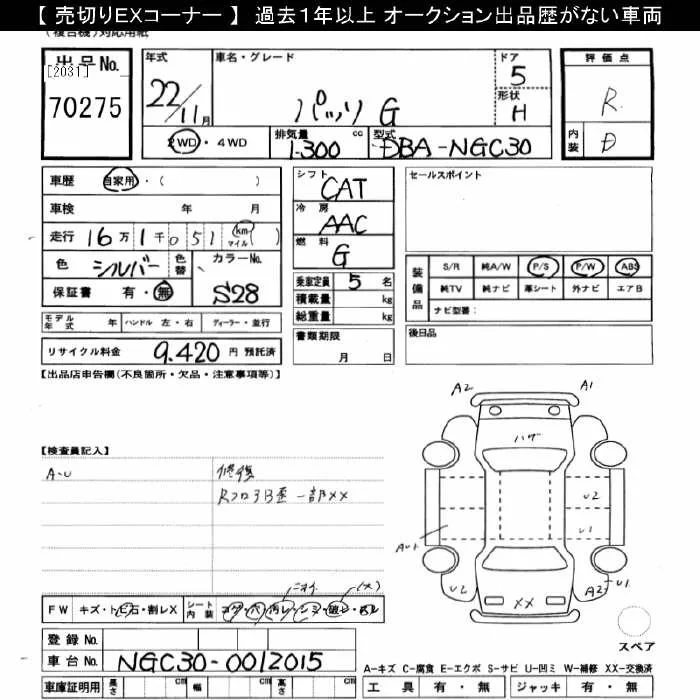 【 売切りEXコーナー 】 過去1年以上 オークション出品歴がない車両
(複合機)対応用紙
出品No.
[2031]
70275
年式
22/11月
車名・グレード
パッソ G
ドア
5
形状
H
2WD・4WD
排気量
1300 cc
型式
DBA-NGC30
評価点
R
内装
D
車歴 自家用・( )
車検 年 月
走行 16万1千051 km マイル ( )
色 シルバー 色替 カラーNo.
S28
保証書 有・無
モデル年式 年 ハンドル 左・右 ディーラー・並行
リサイクル料金 9.420 円 預託済
シフト
CAT
冷房
AAC
燃料
G
乗車定員 5 名
積載量 kg
総重量 kg
書類期限
月 日
セールスポイント
装備品
S/R 純A/W P/S P/W ABS
純TV 純ナビ 革シート 外ナビ エアB
ナビ型番:
後日品
【出品店申告欄(不良箇所・欠品・注意事項等)】
【検査員記入】
A・U
修復
Rフロア歪 一部××
A2 A1
ハゲ
U2
U1
AU1
U2
A2 U1
××
スペア
FW キズ・トビ石・割レX
シート内装 コゲ・穴・汚レ・シミ・破レ・スレ
ニオイ
(大)
登録No.
車台No. NGC30-0012015
車庫証明用 長さ cm 幅 cm 高さ cm
A-キズ C-腐食 E-エクボ S-サビ U-凹ミ W-補修 XX-交換済
工具 有・無 ジャッキ 有・無